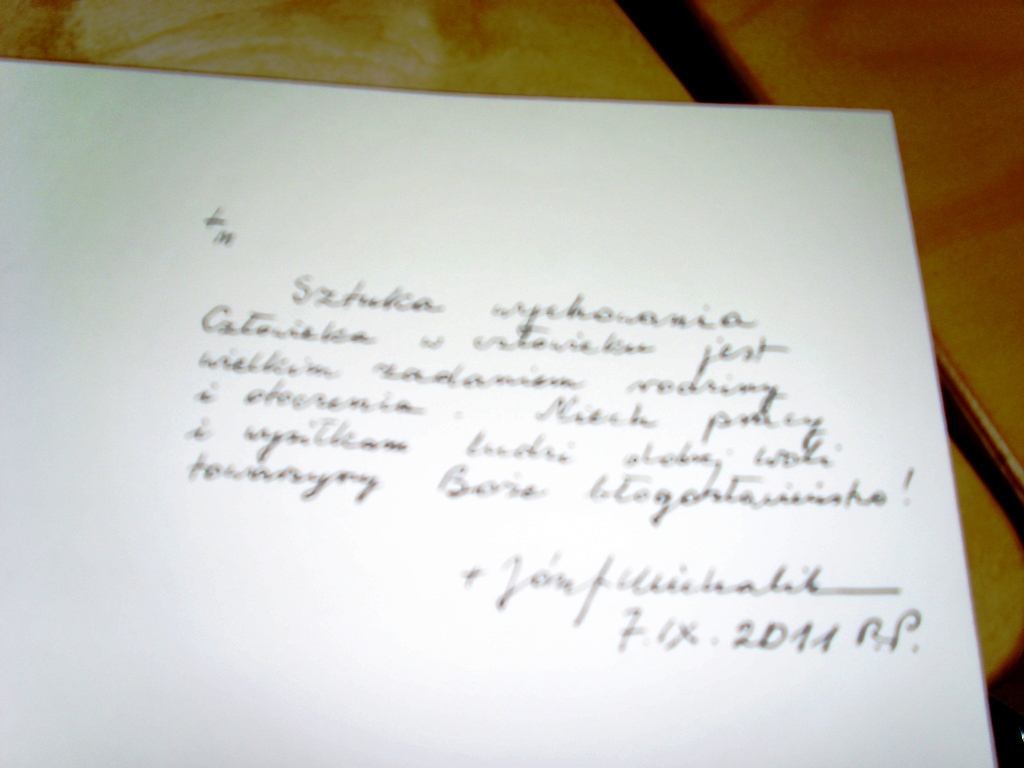 +
m
Sztuka wychowania
Człowieka w człowieku jest
wielkim zadaniem rodziny
i otoczenia. Niech pracy
i wysiłkom ludzi dobrej woli
towarzyszy Boże błogosławieństwo!
+ Józef Michalik
7.IX.2011 R.P.